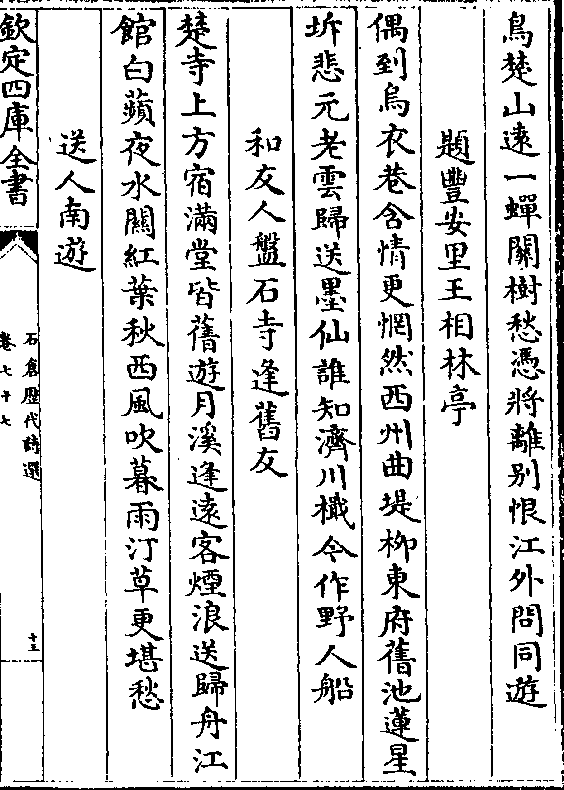 鳥楚山遠一蟬關樹愁憑將離别恨江外問同遊
題豐安里王相林亭
偶到烏衣巷含情更惘然西州曲堤栁東府舊池蓮星
坼悲元老雲歸送墨仙誰知濟川檝今作野人船
和友人盤石寺逢舊友
楚寺上方宿滿堂皆舊遊月溪逢遠客煙浪送歸舟江
館白蘋夜水關紅葉秋西風吹暮雨汀草更堪愁
送人南遊
欽定四庫全書
石倉歷代詩選
卷七十七
十三